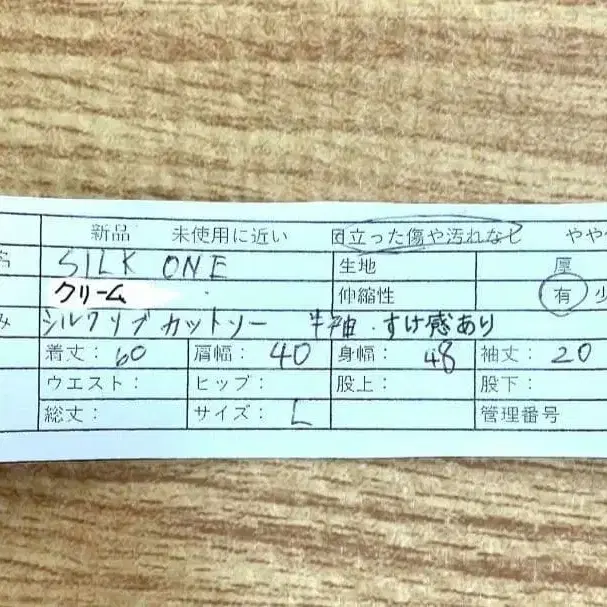 新品 未使用に近い 目立った傷や汚れなし やや
名 SILK ONE 生地 厚
クリーム 伸縮性 有 少
み シルクリブカットソー 半袖・すけ感あり
着丈：60 肩幅：40 身幅：48 袖丈：20
ウエスト： ヒップ： 股上： 股下：
総丈： サイズ：L 管理番号